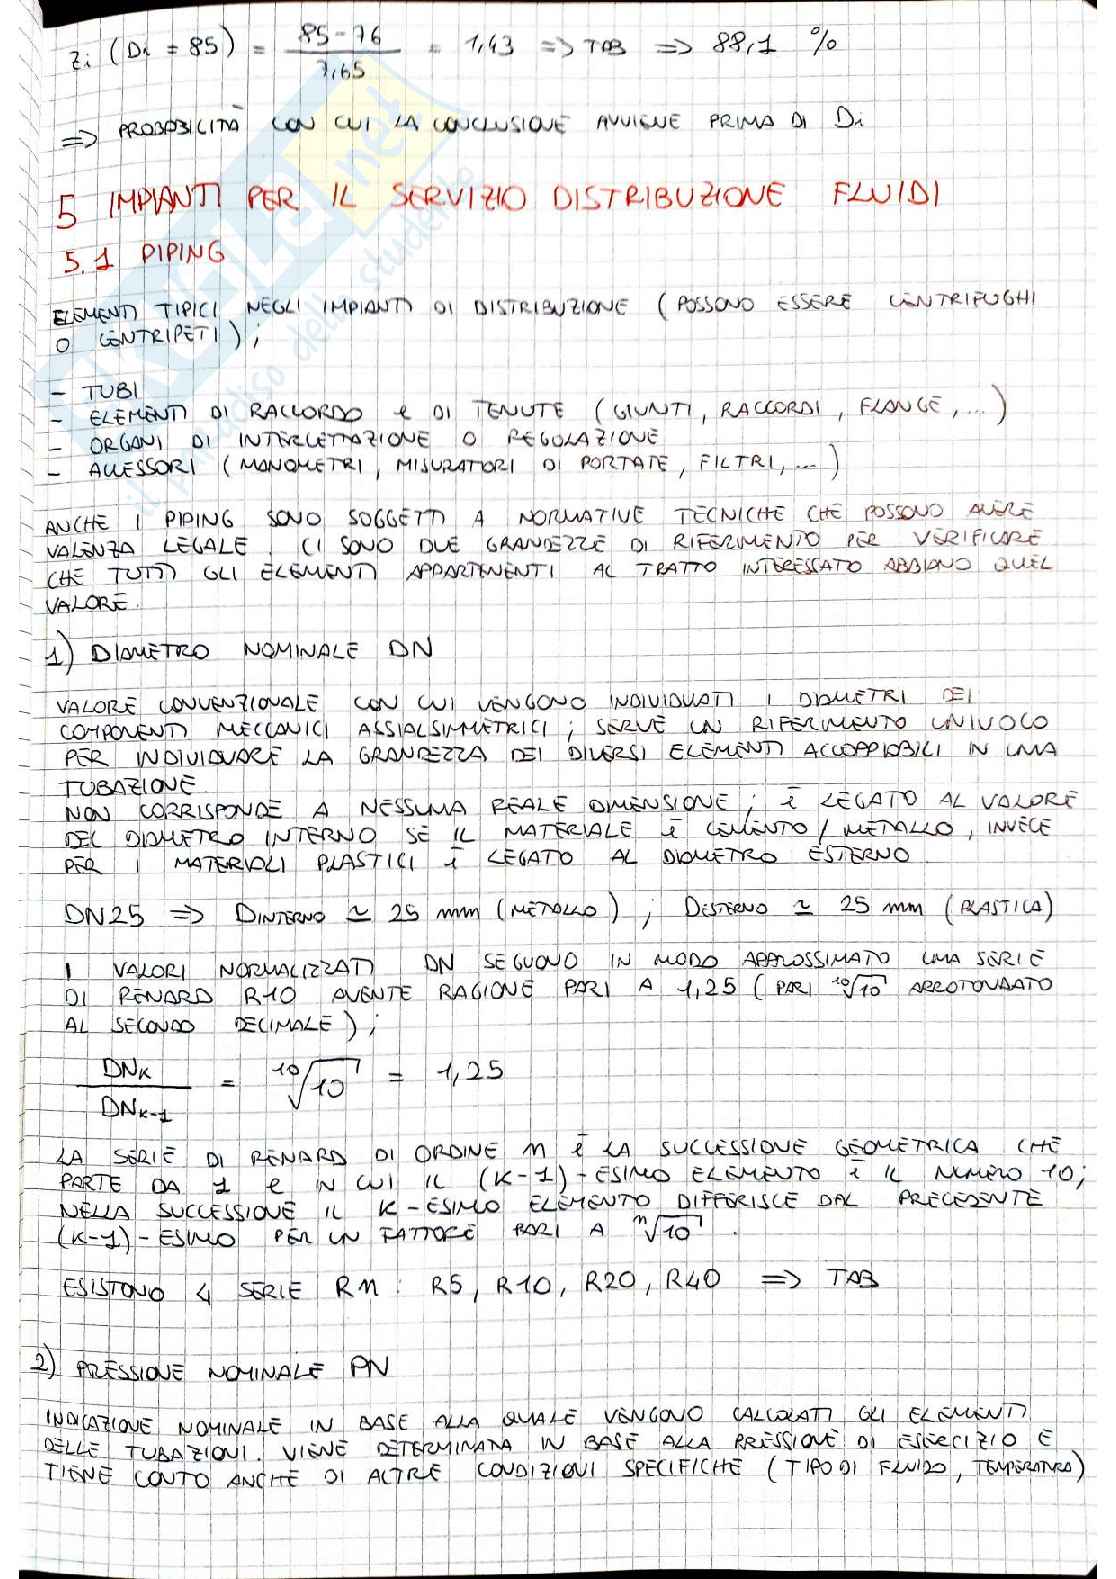 Zi (Di = 85) = 85-76 / 7,65 = 1,43 => TAB => 88,1 %
=> PROBABILITÀ CON CUI LA CONCLUSIONE AVVIENE PRIMA DI Di
5 IMPIANTI PER IL SERVIZIO DISTRIBUZIONE FLUIDI
5.1 PIPING
ELEMENTI TIPICI NEGLI IMPIANTI DI DISTRIBUZIONE (POSSONO ESSERE CENTRIFUGHI
O CENTRIPETI);
- TUBI
- ELEMENTI DI RACCORDO E DI TENUTE (GIUNTI, RACCORDI, FLANGE, ...)
- ORGANI DI INTERCETTAZIONE O REGOLAZIONE
- ACCESSORI (MANOMETRI, MISURATORI DI PORTATE, FILTRI, ...)
ANCHE I PIPING SONO SOGGETTI A NORMATIVE TECNICHE CHE POSSONO AVERE
VALENZA LEGALE. CI SONO DUE GRANDEZZE DI RIFERIMENTO PER VERIFICARE
CHE TUTTI GLI ELEMENTI APPARTENENTI AL TRATTO INTERESSATO ABBIANO QUEL
VALORE.
1) DIAMETRO NOMINALE DN
VALORE CONVENZIONALE CON CUI VENGONO INDIVIDUATI I DIAMETRI DEI
COMPONENTI MECCANICI ASSIALSIMMETRICI; SERVE UN RIFERIMENTO UNIVOCO
PER INDIVIDUARE LA GRANDEZZA DEI DIVERSI ELEMENTI ACCOPPIABILI IN UNA
TUBAZIONE.
NON CORRISPONDE A NESSUNA REALE DIMENSIONE; È LEGATO AL VALORE
DEL DIAMETRO INTERNO SE IL MATERIALE È CEMENTO/METALLO, INVECE
PER I MATERIALI PLASTICI È LEGATO AL DIAMETRO ESTERNO
DN25 => DINTERNO ≃ 25 mm (METALLO); DESTERNO ≃ 25 mm (PLASTICA)
I VALORI NORMALIZZATI DN SEGUONO IN MODO APPROSSIMATO UNA SERIE
DI RENARD R10 AVENTE RAGIONE PARI A 1,25 (PARI ¹⁰√10 ARROTONDATO
AL SECONDO DECIMALE);
DNK / DNK-1 = ¹⁰√10 = 1,25
LA SERIE DI RENARD DI ORDINE n È LA SUCCESSIONE GEOMETRICA CHE
PARTE DA 1 E IN CUI IL (K-1)-ESIMO ELEMENTO È IL NUMERO 10;
NELLA SUCCESSIONE IL K-ESIMO ELEMENTO DIFFERISCE DAL PRECEDENTE
(K-1)-ESIMO PER UN FATTORE PARI A ⁿ√10.
ESISTONO 4 SERIE Rn: R5, R10, R20, R40 => TAB
2) PRESSIONE NOMINALE PN
INDICAZIONE NOMINALE IN BASE ALLA QUALE VENGONO CALCOLATI GLI ELEMENTI
DELLE TUBAZIONI. VIENE DETERMINATA IN BASE ALLA PRESSIONE DI ESERCIZIO E
TIENE CONTO ANCHE DI ALTRE CONDIZIONI SPECIFICHE (TIPO DI FLUIDO, TEMPERATURA)